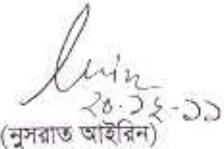 ২০-১২-১১
(নুসরাত আইরিন)